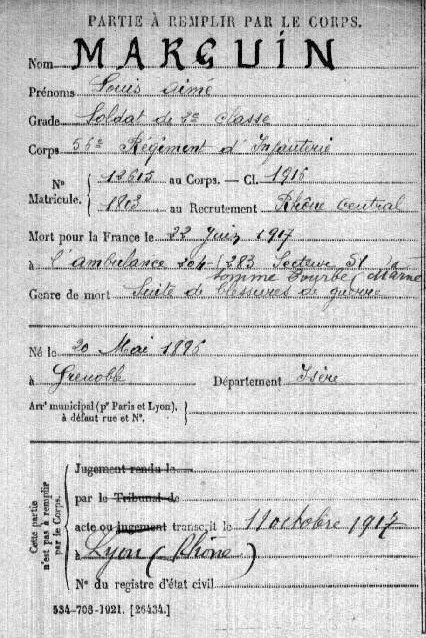 PARTIE À REMPLIR PAR LE CORPS.
Nom MARGUIN
Prénoms Louis Aimé
Grade Soldat de 2e Classe
Corps 55e Régiment d'Infanterie
No 12615 au Corps. — Cl. 1915
Matricule. 1803 au Recrutement Rhône Central
Mort pour la France le 22 Juin 1917
à l'ambulance 204/283 Secteur 51 à
Somme Tourbe (Marne
Genre de mort Suite de blessures de guerre
Né le 20 Mai 1895
à Grenoble Département Isère
Arrt municipal (pr Paris et Lyon),
à défaut rue et No.
Cette partie n'est pas à remplir par le Corps.
Jugement rendu le
par le Tribunal de
acte ou jugement transcrit le 11 octobre 1917
à Lyon (Rhône)
No du registre d'état civil
534-708-1921. [26434.]